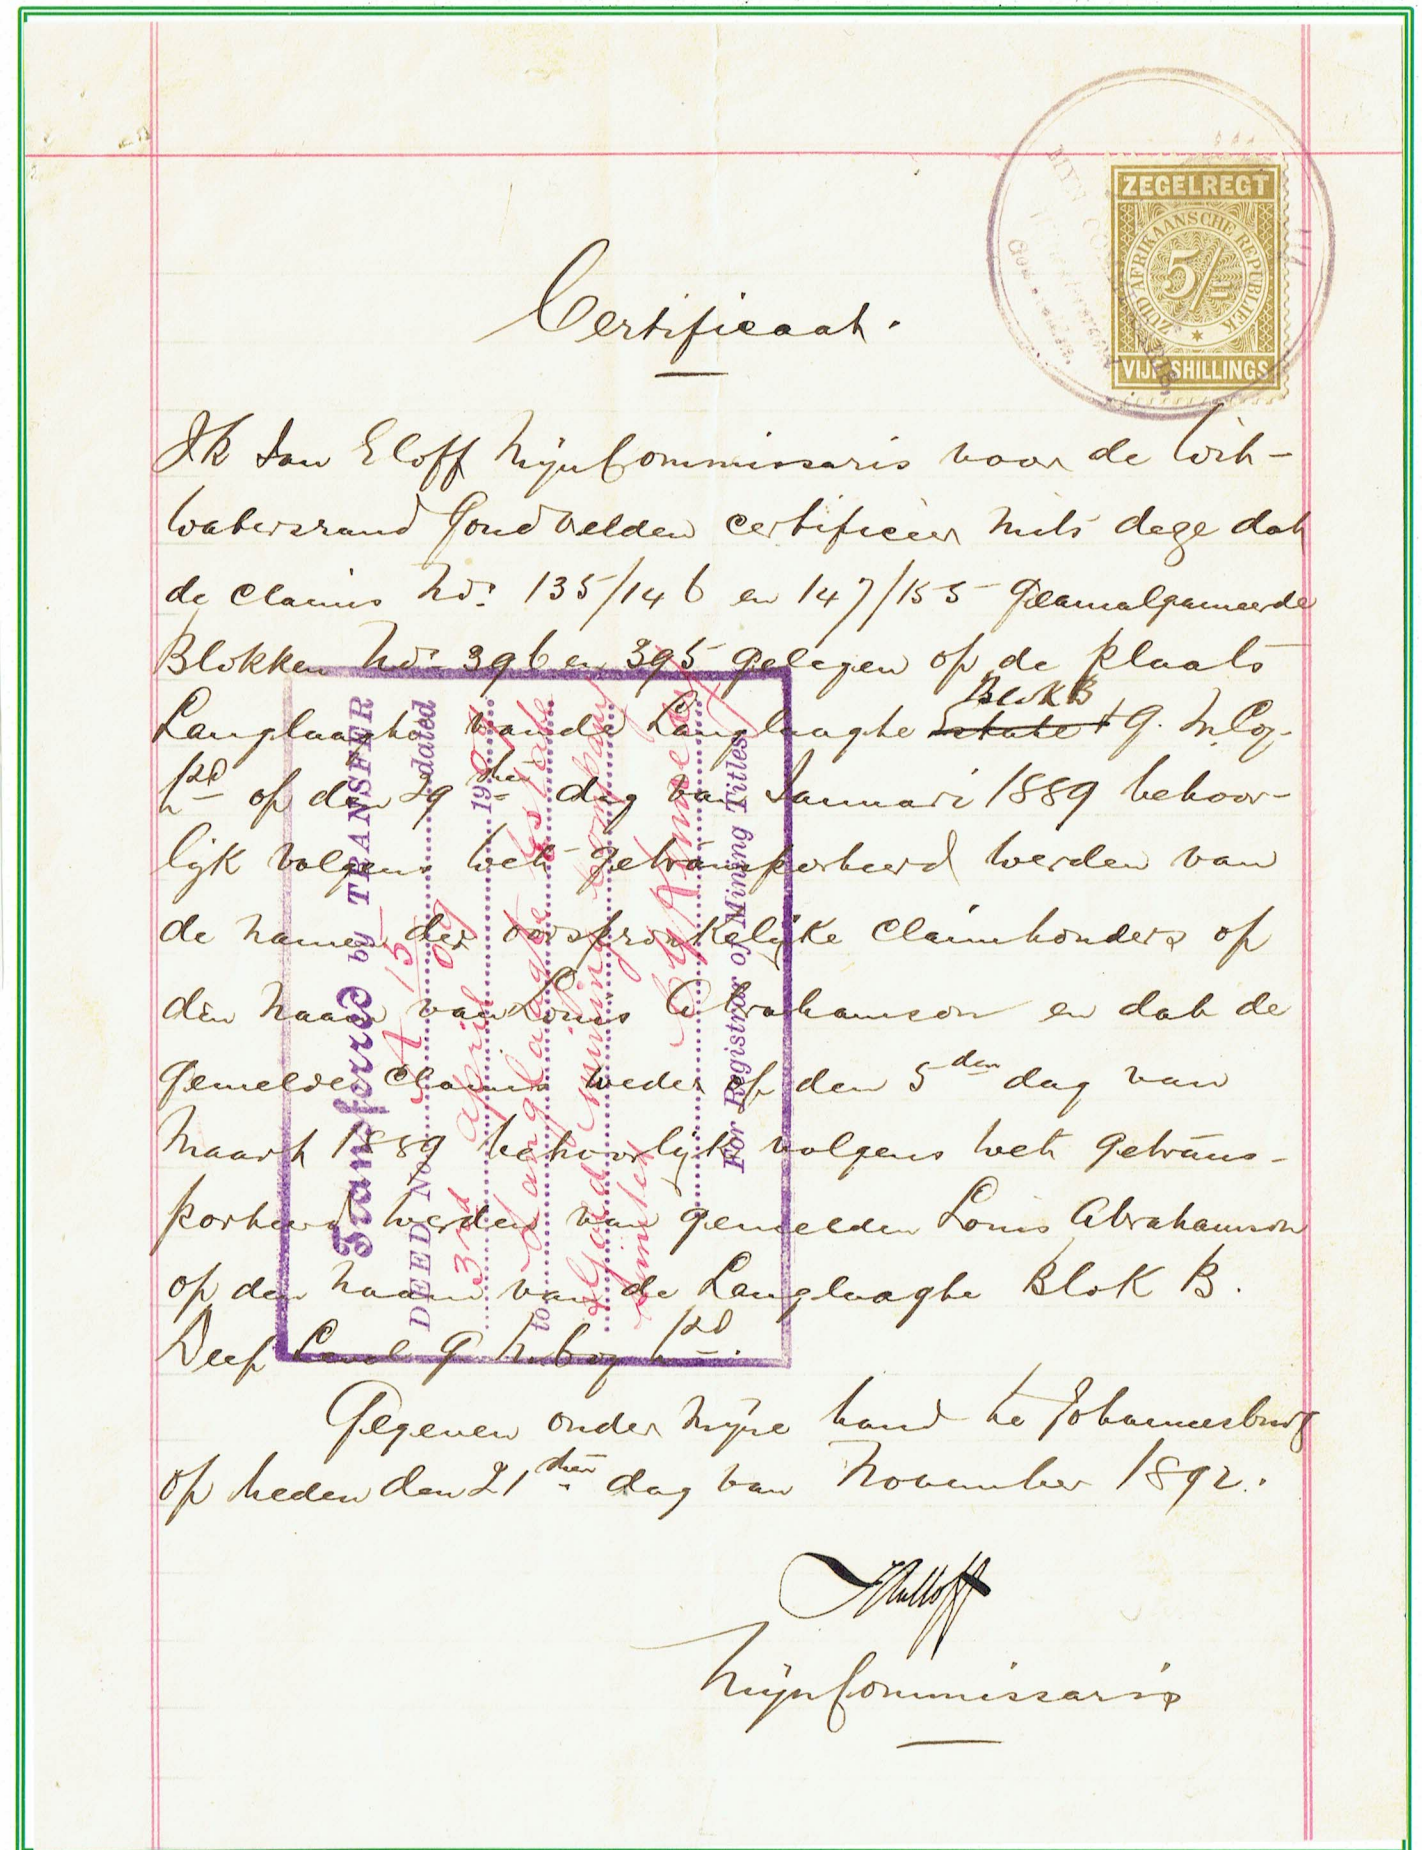 ZEGELREGT
ZUID AFRIKAANSCHE REPUBLIEK
5/-
VIJF SHILLINGS
Certificaat.
Ik Jan Eloff MijnCommissaris voor de Wit-
watersrand Goudvelden certificeer mits deze dat
de claims No: 135/146 en 147/155 Geamalgameerde
Blokken No: 396 en 395 gelegen op de plaats
Blok B
Langlaagte van de Langlaagte Estate G. M. Coy.
Ltd op den 29sten dag van Januari 1889 behoor-
lijk volgens wet getransporteerd werden van
de namen der oorspronkelijke claimhouders op
den naam van Louis Abrahamson en dat de
gemelde Claims weder op den 5den dag van
Maart 1889 behoorlijk volgens wet getrans-
porteerd werden van gemelden Louis Abrahamson
op den naam van de Langlaagte Blok B.
Deep Level G. M. Coy Ltd.
Gegeven onder mijne hand te Johannesburg
op heden den 21sten dag van November 1892.
MijnCommissaris
Transferred by TRANSFER
DEED No. A 15/09 dated
3rd April 1909
to Langlaagte Estate
& Gold Mining Company
Limited
For Registrar of Mining Titles